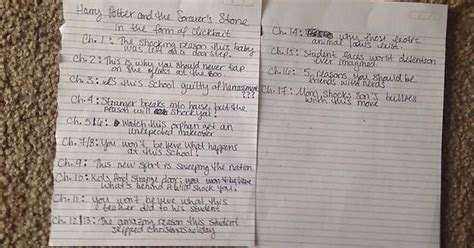 Harry Potter and the Sorcerer's Stone
in the form of Clickbait
Ch. 1: The shocking reason this baby
was left on a doorstep.
Ch. 2: This is why you should never tap
on the glass at the zoo
Ch. 3: Is this School guilty of Harassment
???
Ch. 4: Stranger breaks into house, but the
reason will shock you!
Ch. 5/6: Watch this orphan get an
unexpected makeover
Ch. 7/8: You won't believe what happens
at this School!
Ch. 9: This new Sport is sweeping the nation.
Ch. 10: Kids find strange door; you won't believe
what's behind it will shock you.
Ch. 11: You won't believe what this
teacher did to his student
Ch. 12/13: The amazing reason this student
skipped Christmas holiday
Ch. 14: why these exotic
animal laws exist.
Ch. 15: Student enters worst detention
ever imagined
Ch. 16: 5 reasons you should be
friends with nerds
Ch. 17: Mom shocks son's bullies
with this move